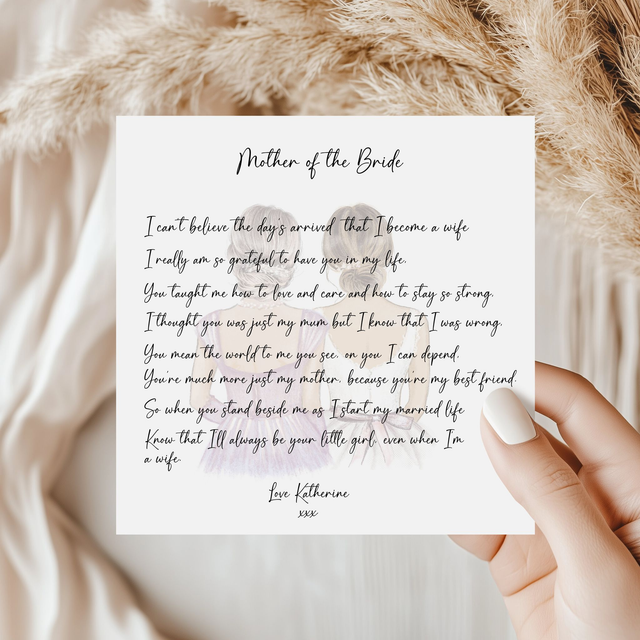 Mother of the Bride
I can't believe the day's arrived that I become a wife
I really am so grateful to have you in my life.
You taught me how to love and care and how to stay so strong.
I thought you was just my mum but I know that I was wrong.
You mean the world to me you see, on you I can depend.
You're much more just my mother, because you're my best friend.
So when you stand beside me as I start my married life
Know that I'll always be your little girl, even when I'm
a wife.
Love Katherine
xxx